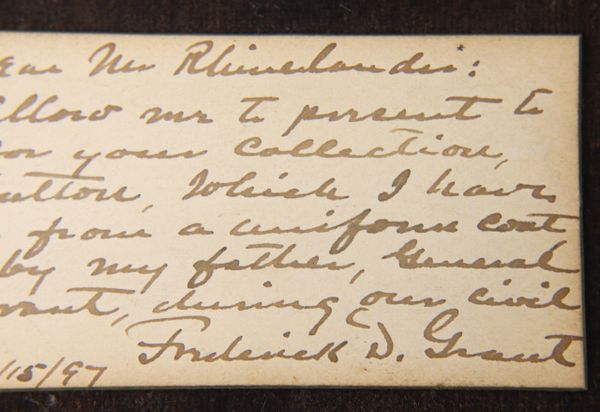 ear Mr Rhinelander:
llow me to present to
or your collection,
utton, which I have
from a uniform coat,
by my father, General
rant, during our civil
Frederick D. Grant
/15/97